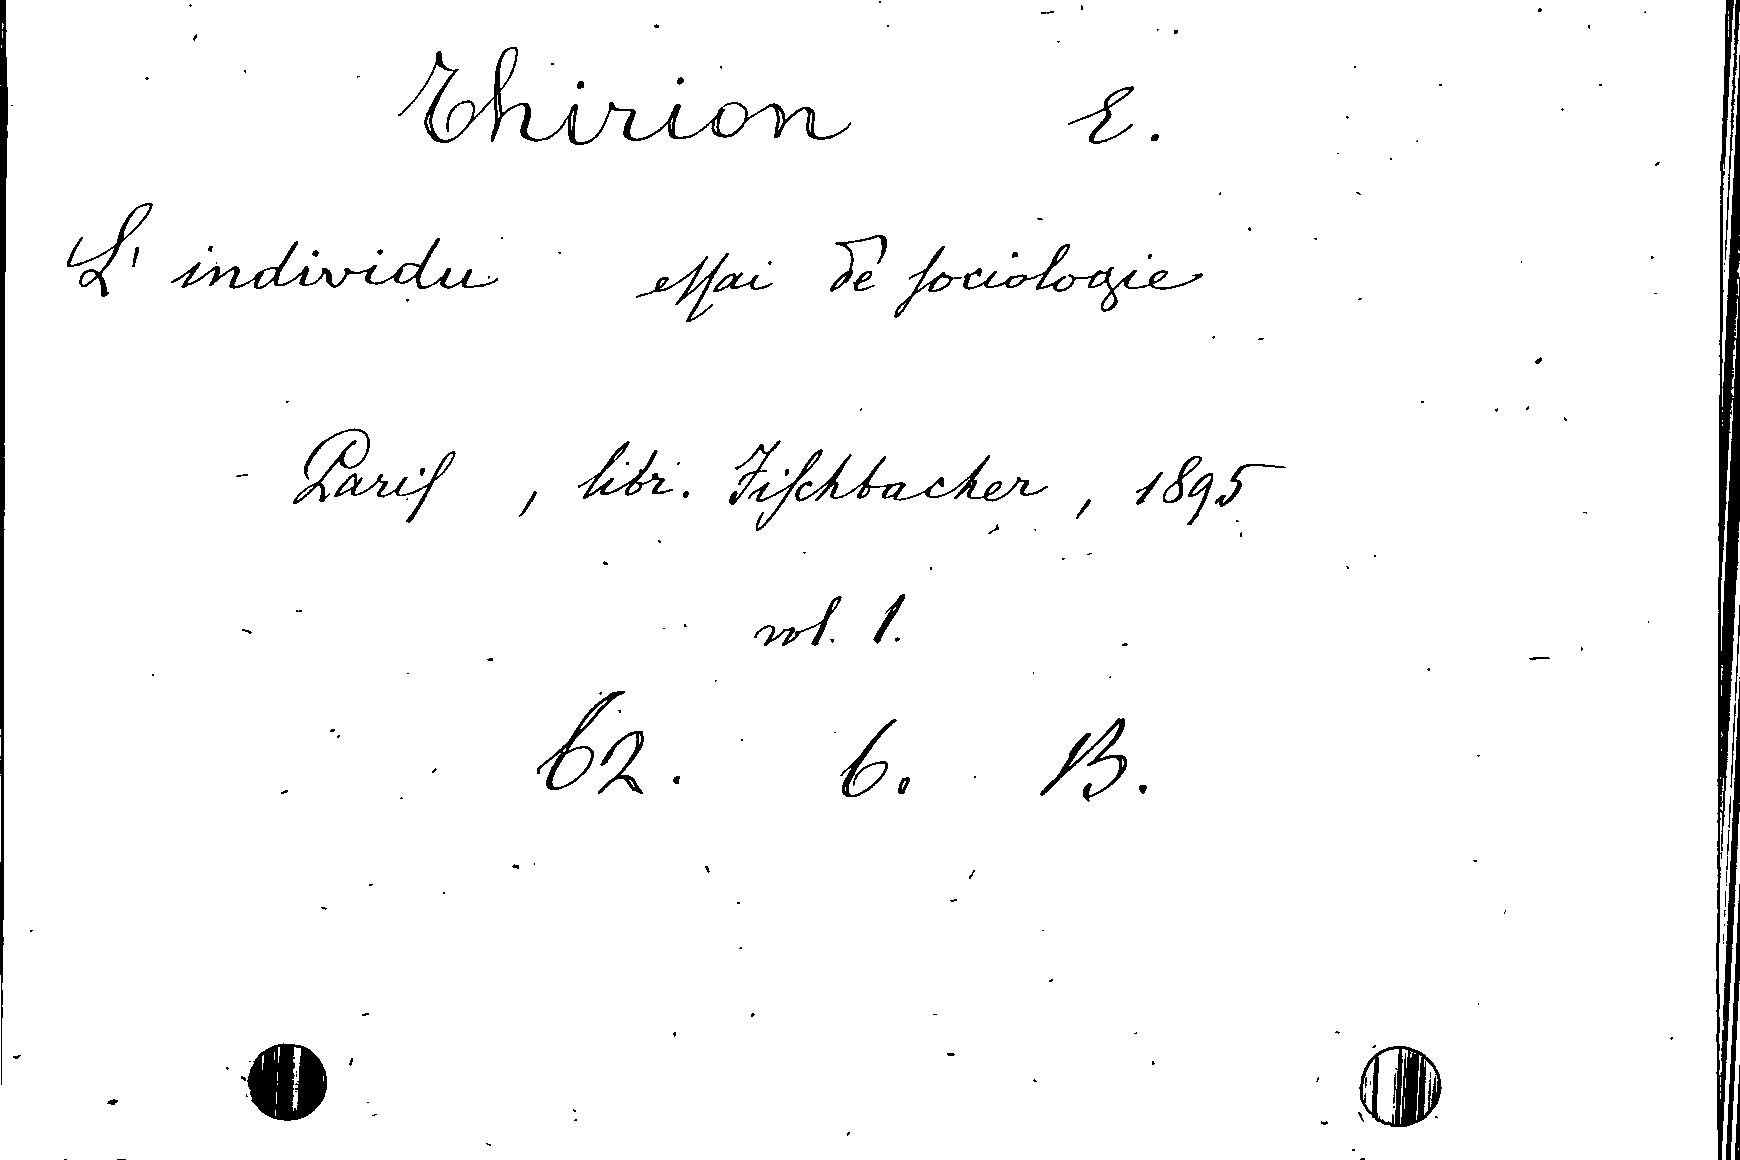 Thirion E.
L'individu essai de sociologie
Paris, libr. Fischbacher, 1895
vol. 1.
62. 6. B.